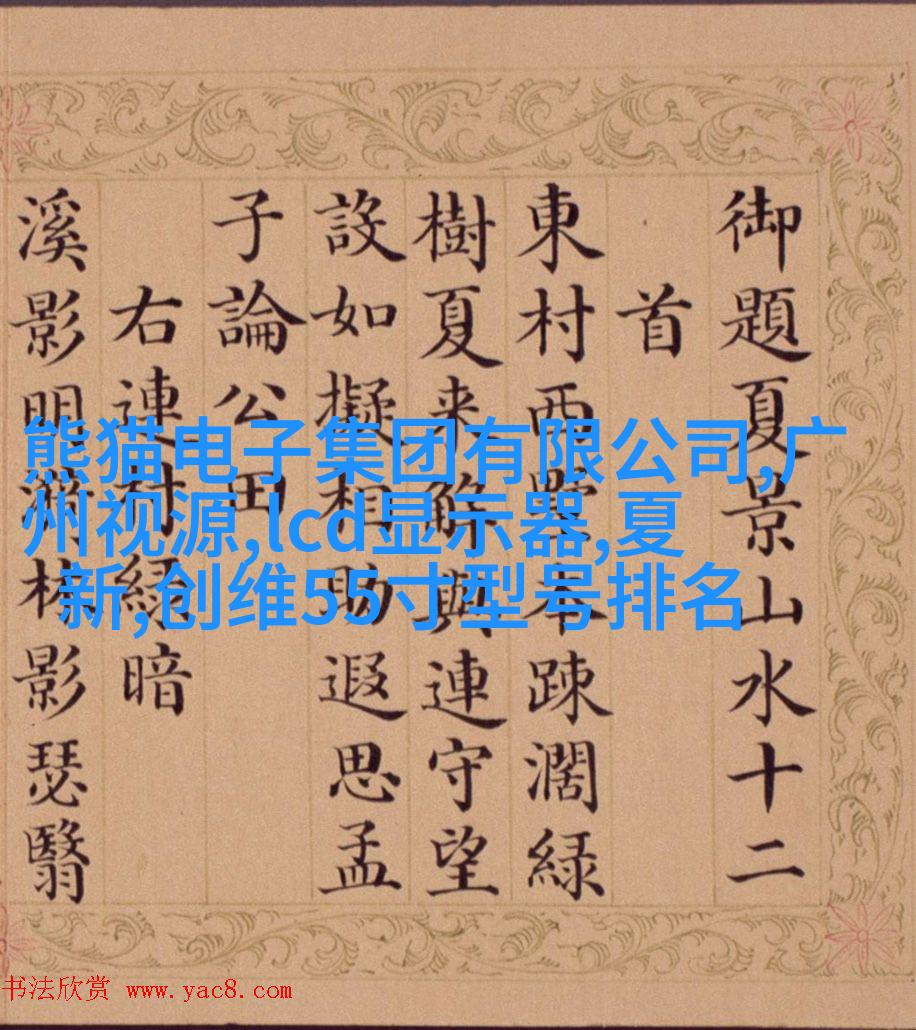 御題夏景山水十二
首
東村西墅本踈濶緑
樹夏来解與連守望
設如擬相助遐思孟
子論公田
右連村緑暗
溪影明林影瑟翳
熊猫电子集团有限公司,广
州视源,lcd显示器,夏
新,创维55寸型号排名
书法欣赏 www.yac8.com